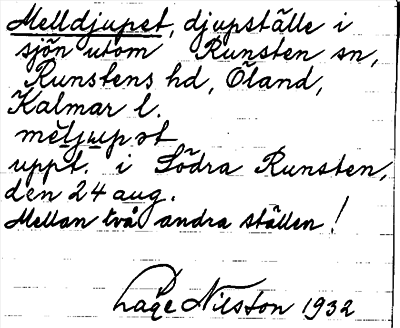 Melldjupet, djupställe i
sjön utom Runsten sn,
Runstens hd, Öland,
Kalmar l.
meljupət
uppt. i Södra Runsten,
den 24 aug.
Mellan två andra ställen!
Lage Nilsson 1932